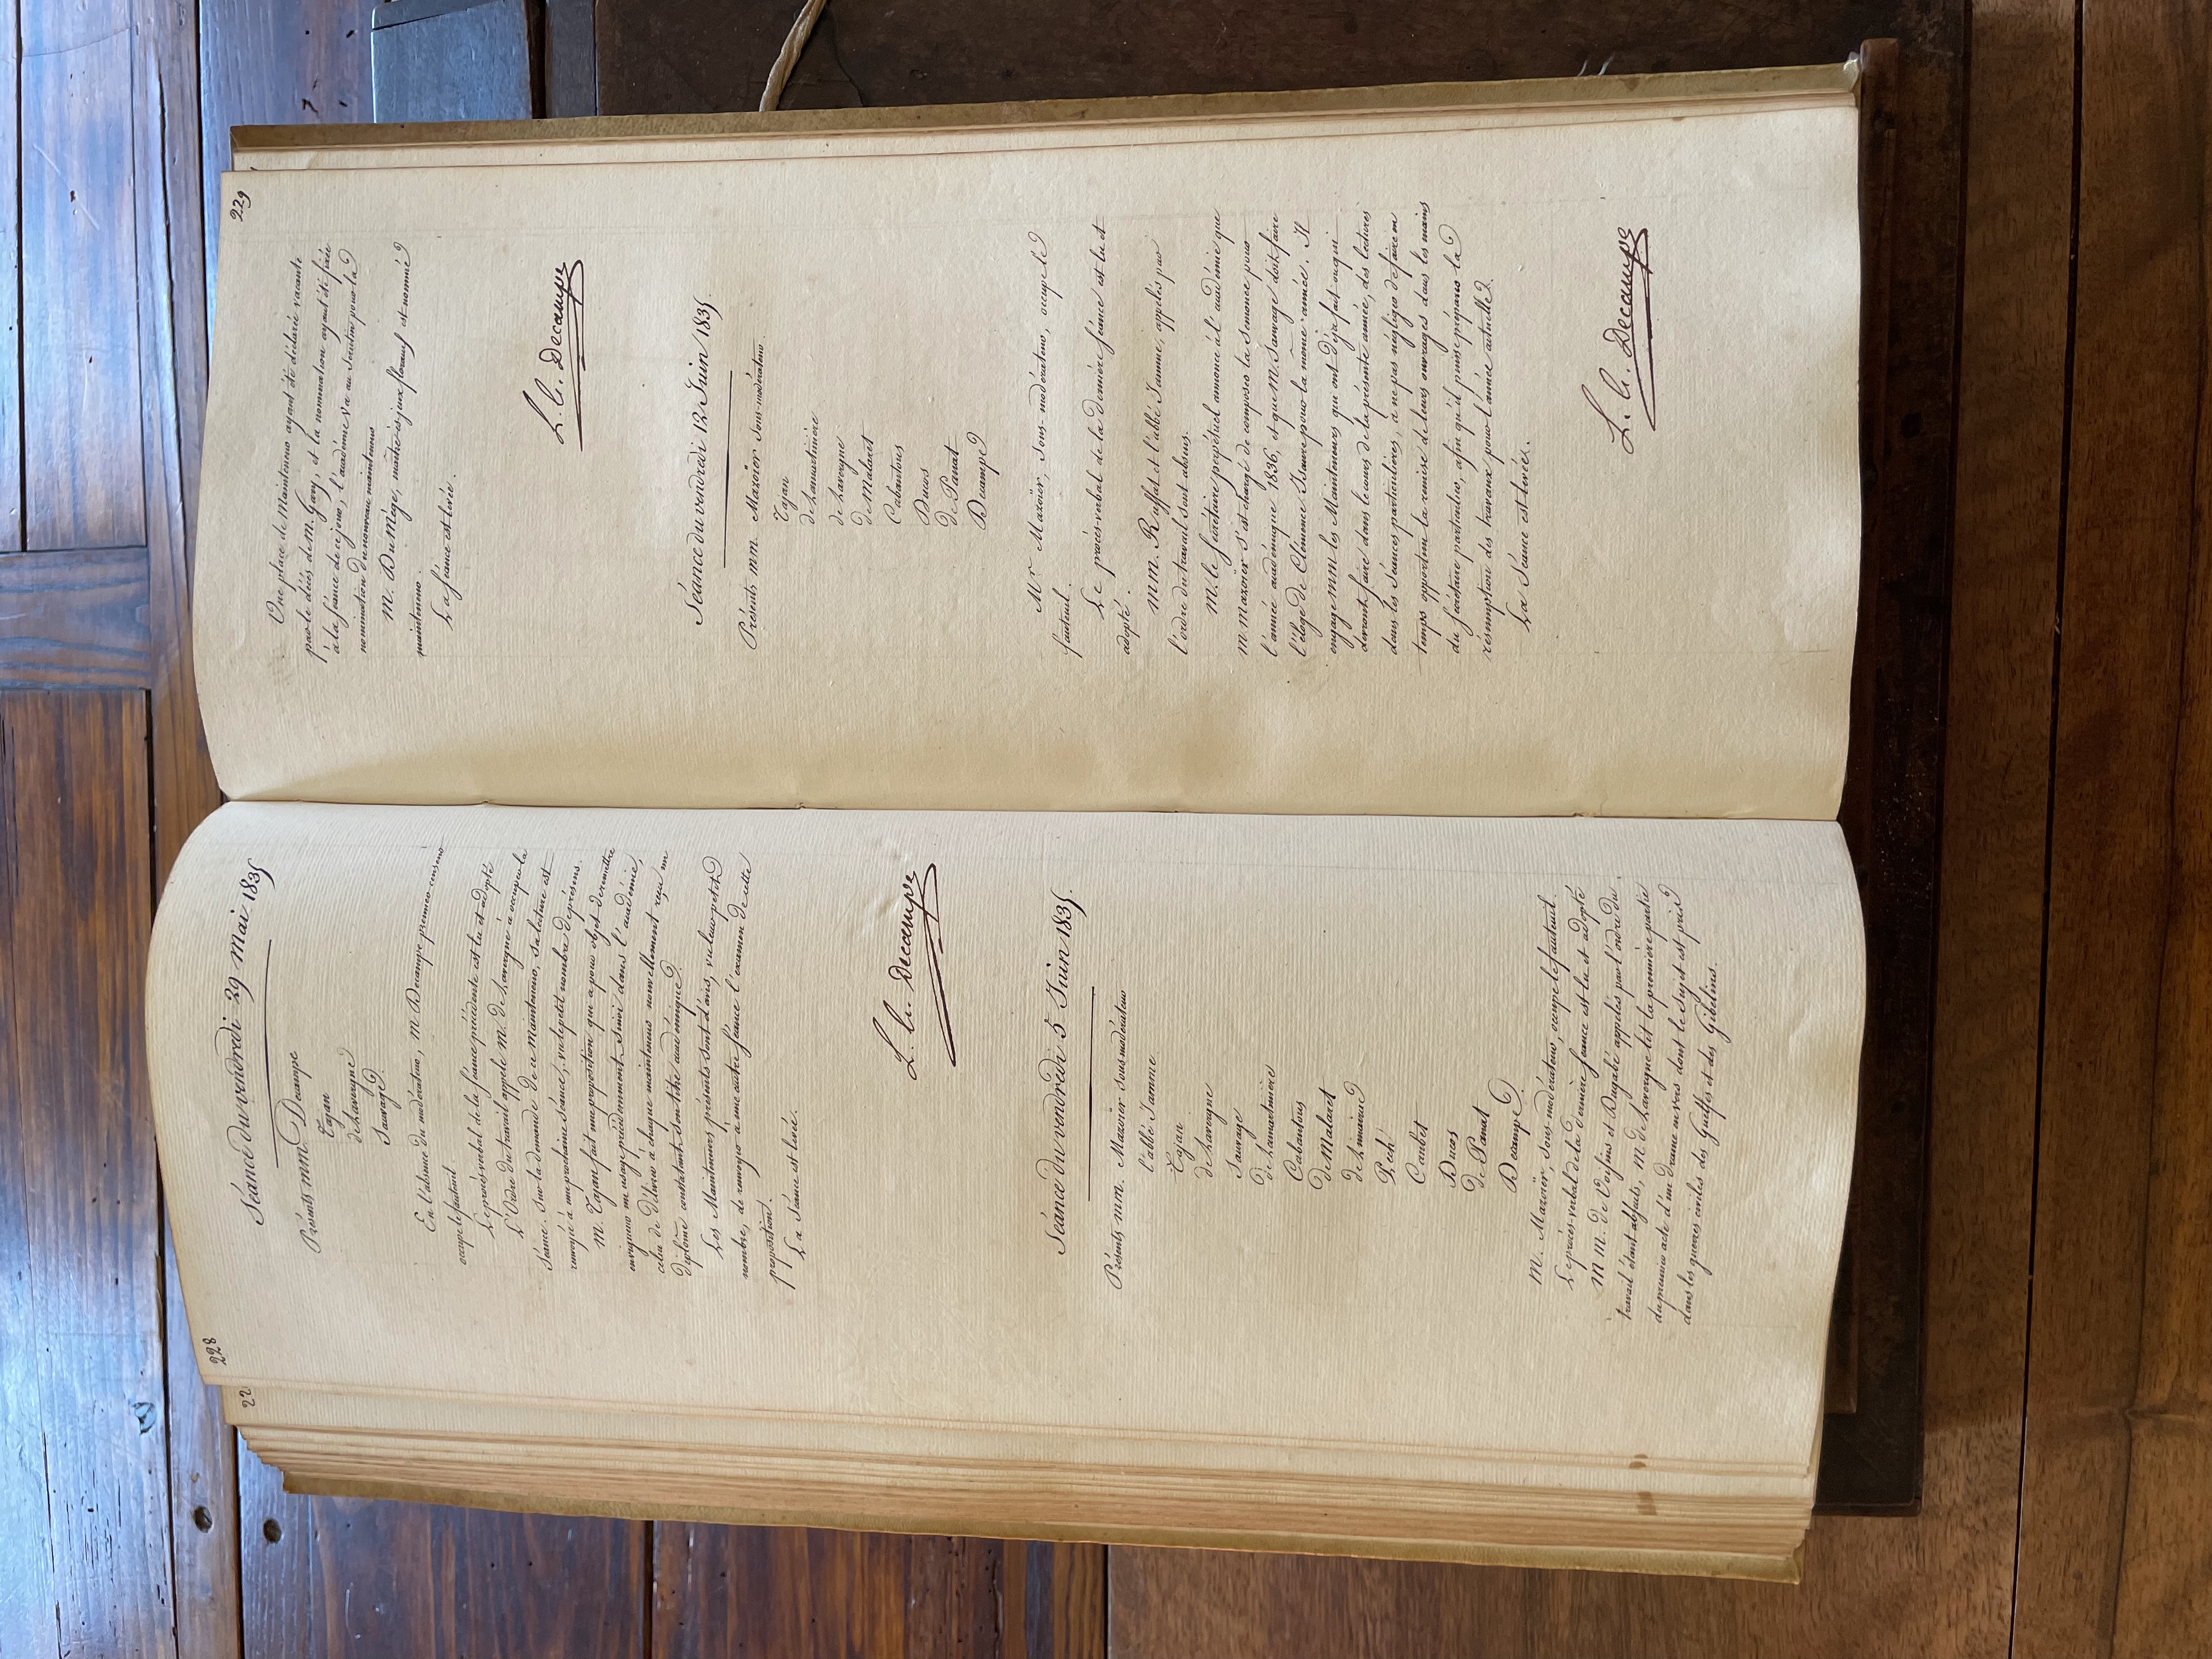 228
Séance du vendredi 29 Mai 1835
Présents MM. Decampe
Tajan
de Lavergne
Sauvage
En l'absence du modérateur, M Decampe premier censeur
occupe le fauteuil.
Le procès-verbal de la séance précédente est lu et adopté
L'Ordre du travail appele M. de Lavergne à occuper la
Séance. Sur la demande de ce Mainteneur, sa lecture est
renvoyée à une prochaine séance, vu le petit nombre de présens.
M. Tajan fait une proposition qui a pour objet de remettre
en vigueur un usage précédemment suivi dans l'académie,
celui de délivrer à chaque mainteneur nouvellement reçu un
diplôme constatant son titre académique.
Les Mainteneurs présents sont d'avis, vu leur petit
nombre, de renvoyer à une autre séance l'examen de cette
proposition.
La Séance est levée.
L. G. Decampe
Séance du vendredi 5 Juin 1835.
Présents MM. Mazoïer Sous-modérateur
l'abbé Jamme
Tajan
de Lavergne
Sauvage
de Lamartinière
Cabantous
de Malaret
de Limairac
Pech
Caubet
Ducos
de Panat
Decampe.
M. Mazoïer, Sous-modérateur, occupe le fauteuil.
Le procès-verbal de la dernière séance est lu et adopté
MM. de Voisins et Dugabé appelés par l'ordre du
travail étant absents, M. de Lavergne lit la première partie
du premier acte d'un Drame en vers dont le Sujet est pris
dans les guerres civiles des Guelfes et des Gibelins.
229
Une place de Mainteneur ayant été déclarée vacante
par le décès de M. Gary, et la nomination ayant été fixée
à la séance de ce jour, l'académie va au Scrutin pour la
nomination du nouveau mainteneur
M. Du Mège, maître ès jeux floraux est nommé
mainteneur.
La séance est levée.
L. G. Decampe
Séance du vendredi 12 Juin 1835.
Présents MM. Mazoïer Sous-modérateur
Tajan
de Lamartinière
de Lavergne
de Malaret
Cabantous
Ducos
de Panat
Decampe
Mr Mazoïer, Sous-modérateur, occupe le
fauteuil.
Le procès-verbal de la dernière séance est lu et
adopté.
MM. Ruffat et l'abbé Jamme, appelés par
l'ordre du travail sont absens.
M. le Secrétaire perpétuel annonce à l'académie que
M Mazoïer s'est chargé de composer la Semonce pour
l'année académique 1836, et que M. Sauvage doit faire
l'éloge de Clémence Isaure pour la même année. Il
engage MM les Mainteneurs qui ont déjà fait ou qui
devront faire dans le cours de la présente année, des lectures
dans les séances particulières, à ne pas négliger de faire en
temps opportun la remise de leurs ouvrages dans les mains
du Secrétaire particulier, afin qu'il puisse préparer la
résumption des travaux pour l'année actuelle.
La Séance est levée.
L. G. Decampe